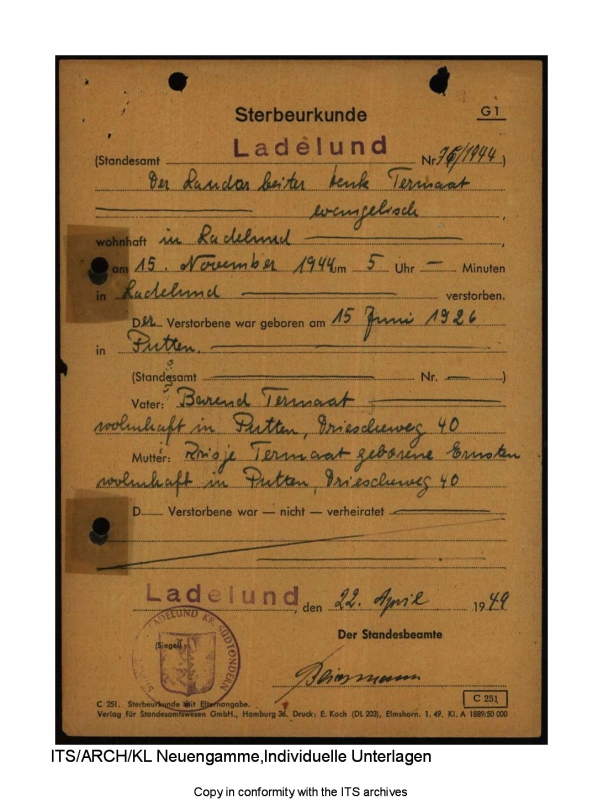 G 1
Sterbeurkunde
(Standesamt Ladelund Nr. /1944)
Der Landarbeiter Henk Termaat
evangelisch,
wohnhaft in Ladelund,
am 15. November 1944 um 5 Uhr — Minuten
in Ladelund verstorben.
Der Verstorbene war geboren am 15 Juni 1926
in Putten.
(Standesamt Nr. )
Vater: Barend Termaat
wohnhaft in Putten, Driescheweg 40
Mutter: Termaat geborene Ernsten
wohnhaft in Putten, Driescheweg 40
D Verstorbene war — nicht — verheiratet
Ladelund, den 22. April 1949
Der Standesbeamte
(Siegel)
LADELUND KR. SÜDTONDERN
C 251
C 251. Sterbeurkunde mit Elternangabe.
Verlag für Standesamtswesen GmbH., Hamburg 36. Druck: E. Koch (DL 203), Elmshorn. 1. 49. Kl. A 1889:50 000
ITS/ARCH/KL Neuengamme,Individuelle Unterlagen
Copy in conformity with the ITS archives